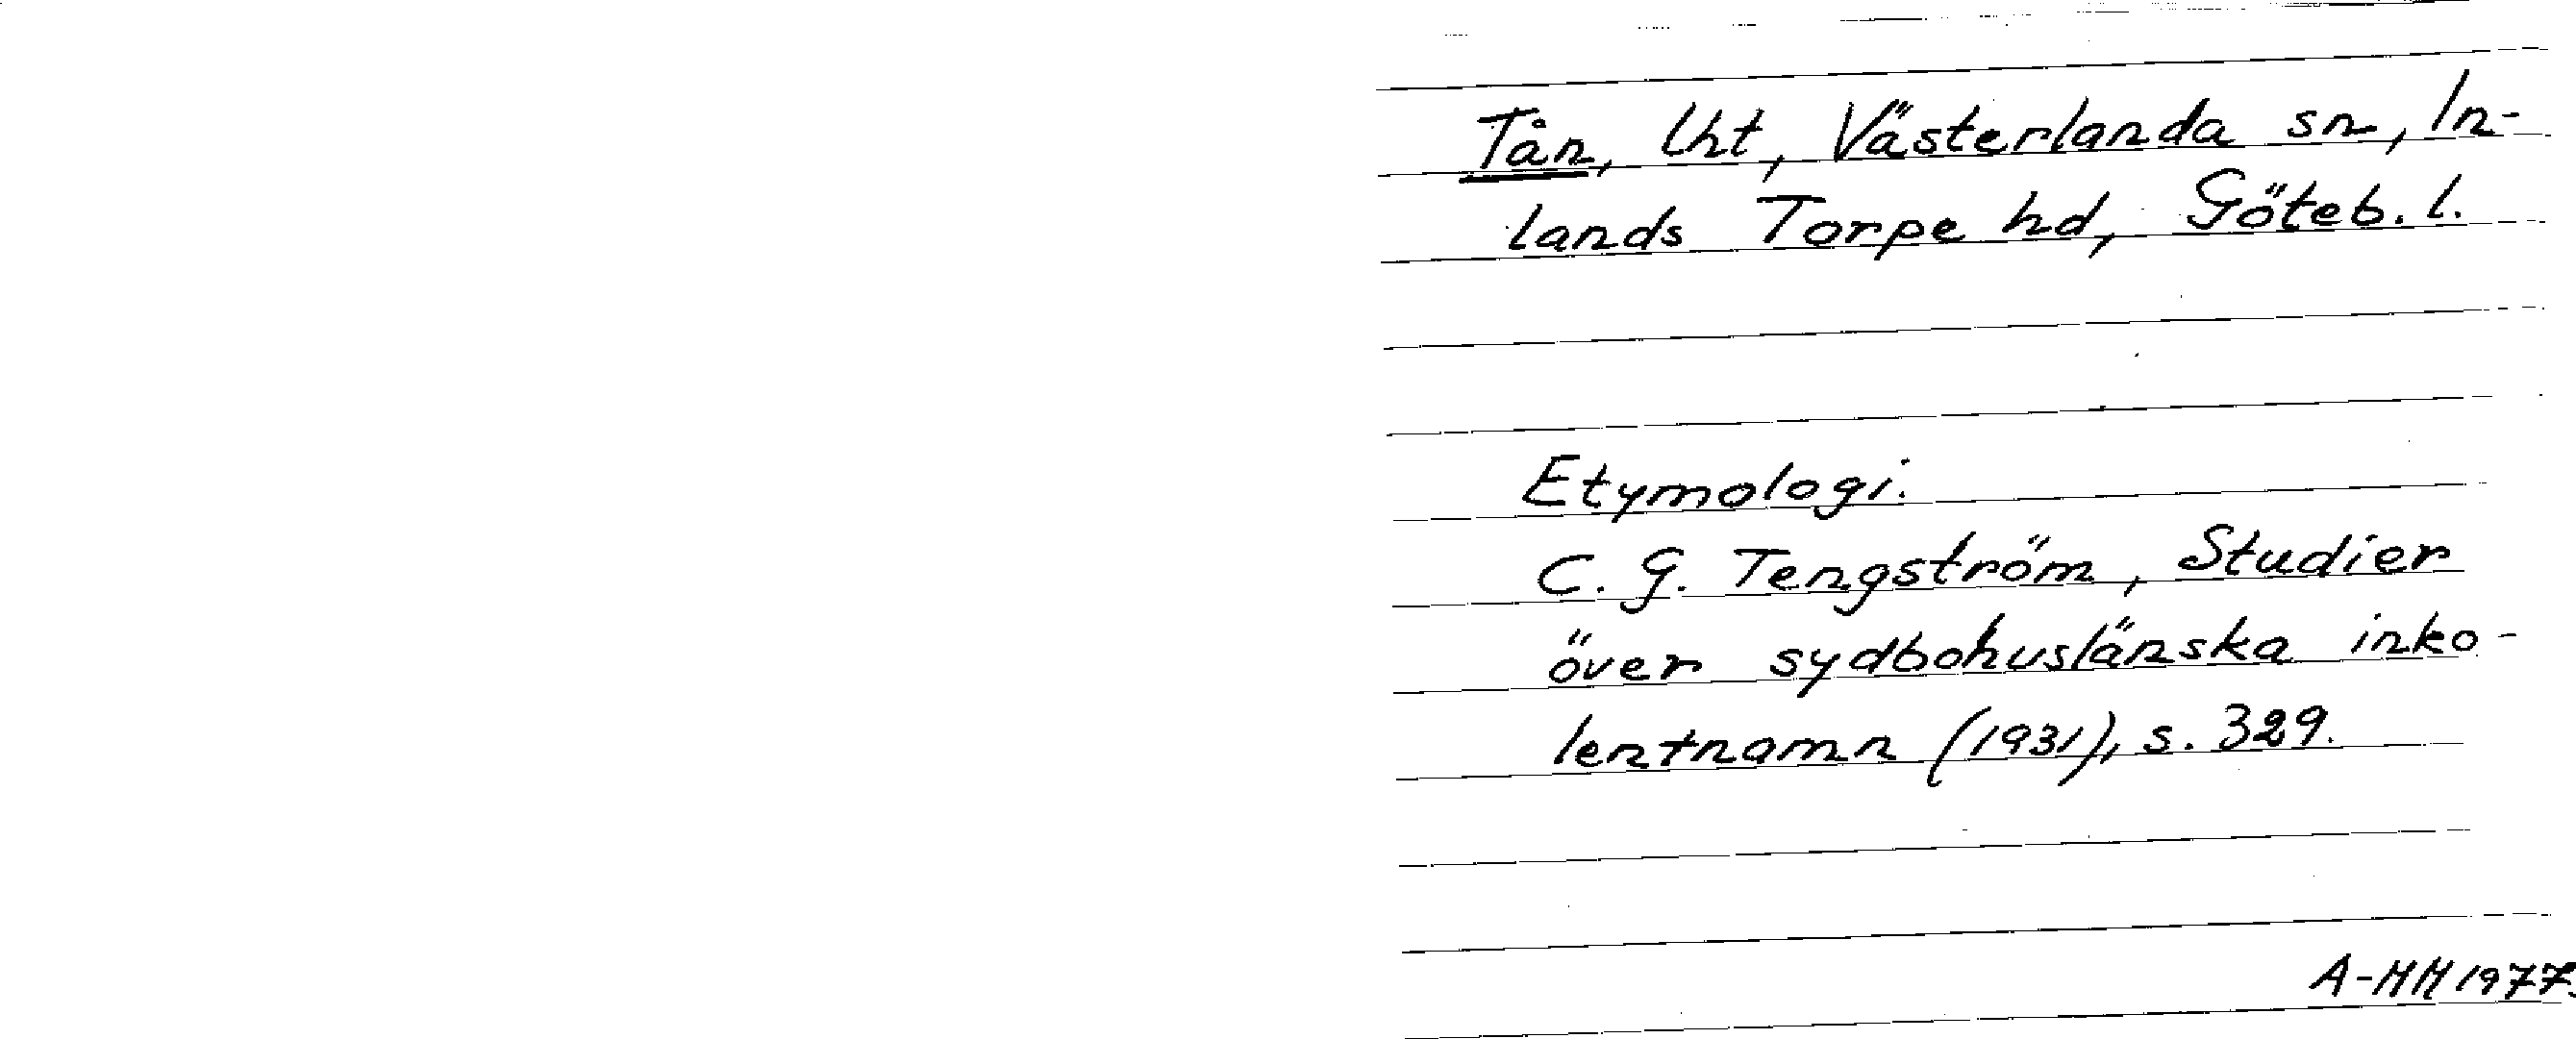 Tån, lht, Västerlanda sn, In-
lands Torpe hd, Göteb. l.
Etymologi.
C. G. Tengström, Studier
över sydbohuslänska inko-
lentnamn (1931), s. 329.
A-MM 1977.